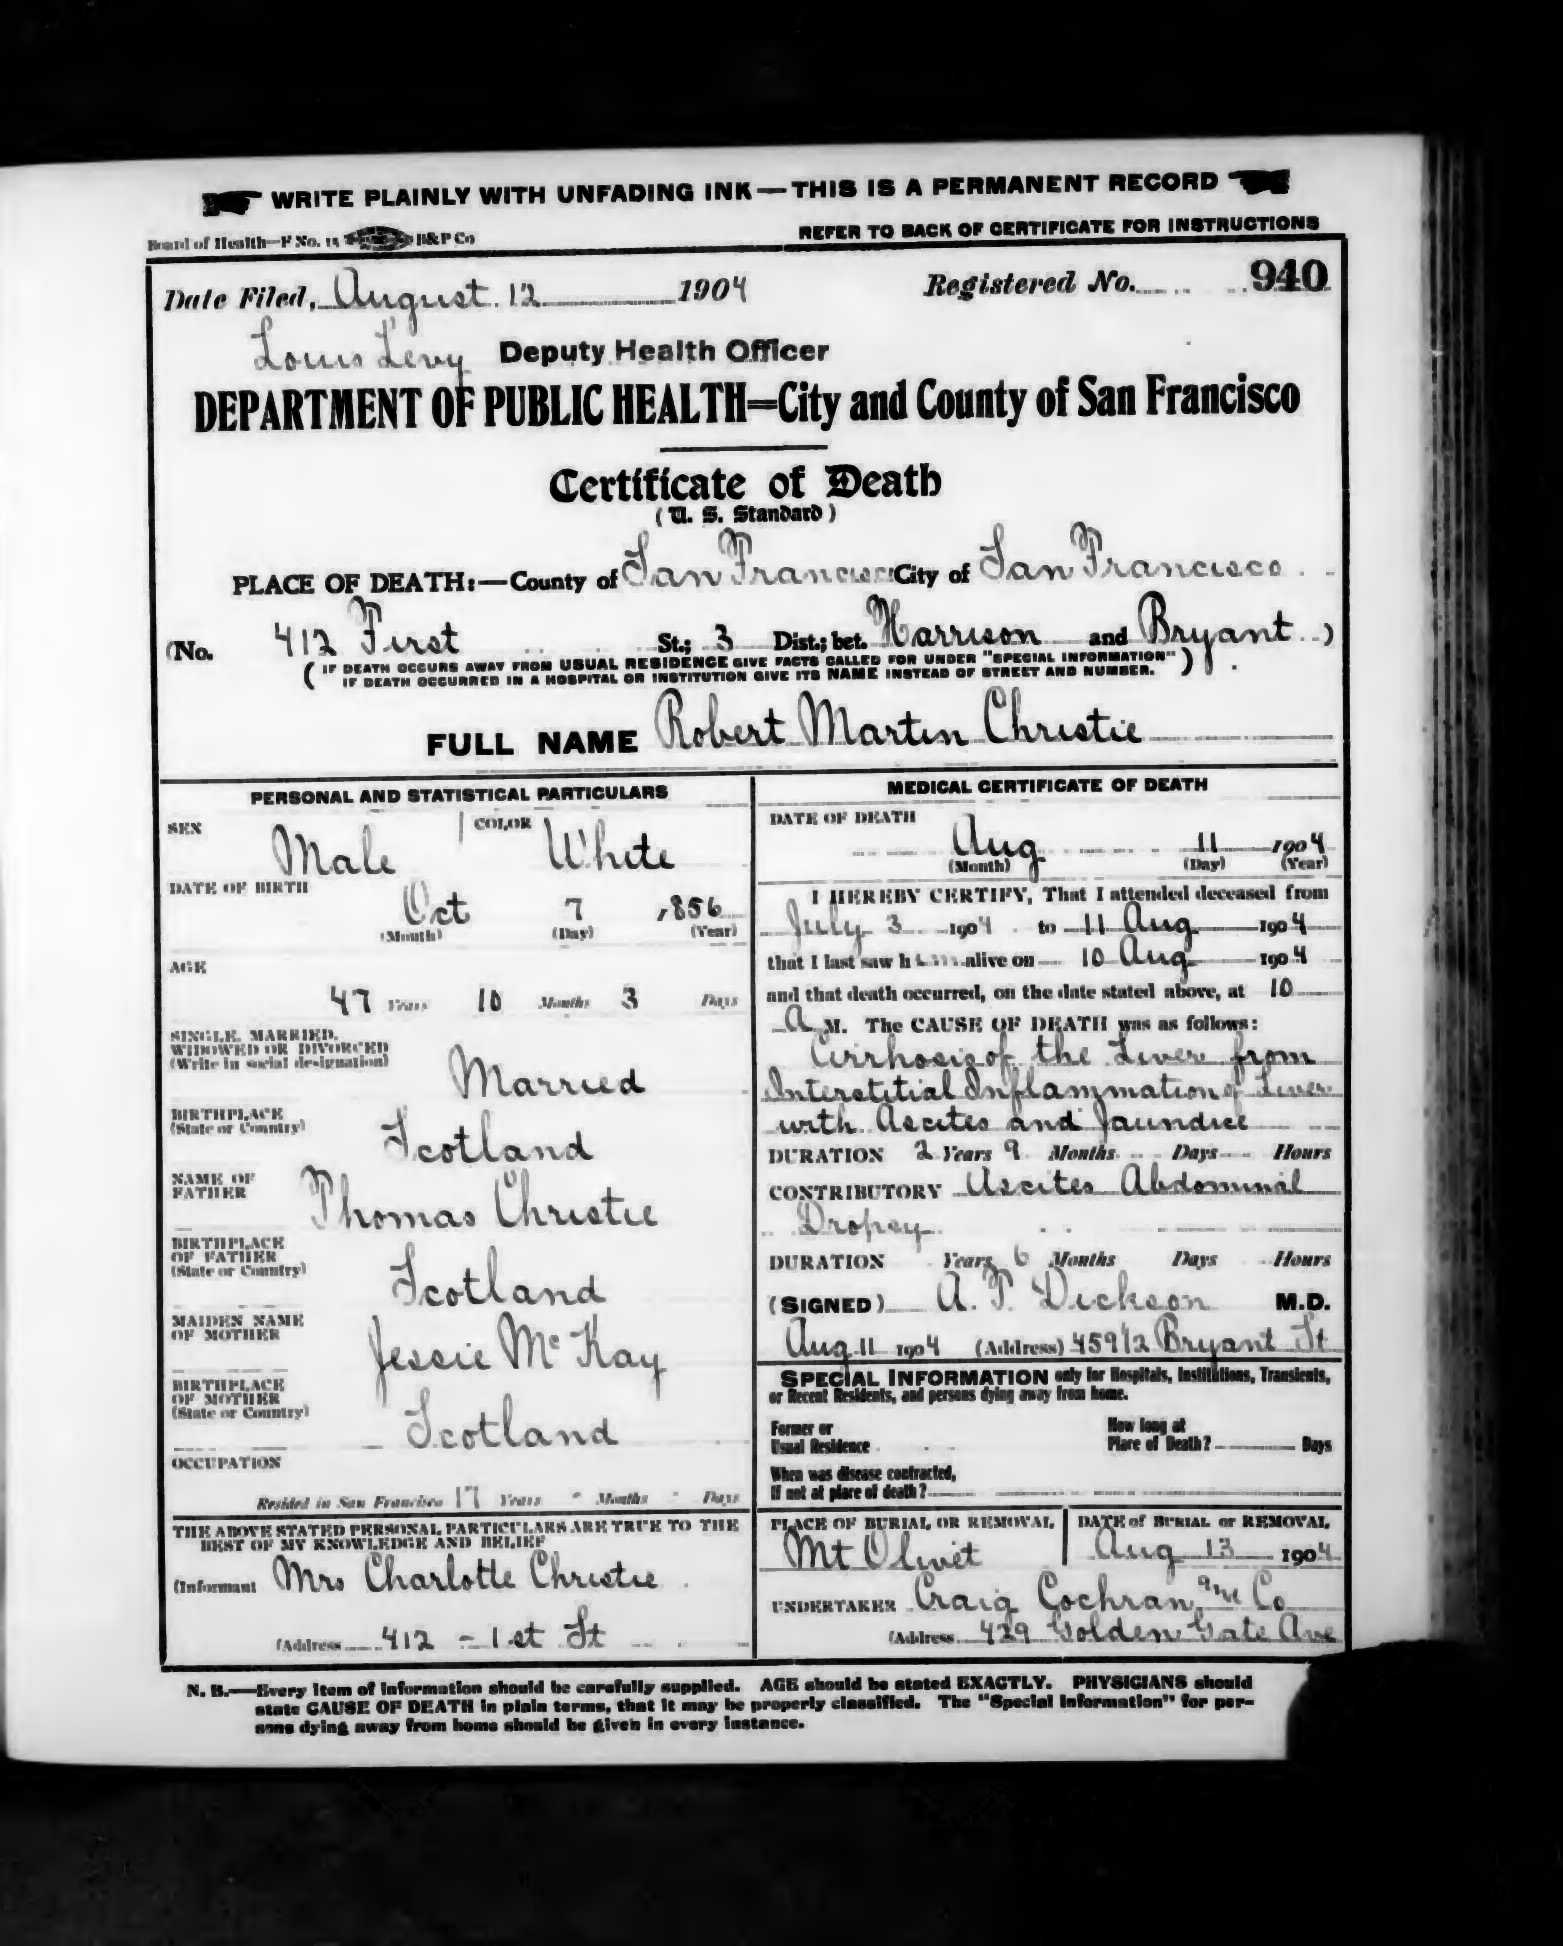 WRITE PLAINLY WITH UNFADING INK—THIS IS A PERMANENT RECORD
Board of Health—F No. 15 H&P Co
REFER TO BACK OF CERTIFICATE FOR INSTRUCTIONS
Date Filed, August 12 1904 Registered No. 940
Louis Levy Deputy Health Officer
DEPARTMENT OF PUBLIC HEALTH=City and County of San Francisco
Certificate of Death
(U. S. Standard)
PLACE OF DEATH:—County of San Francisco City of San Francisco
(No. 412 First St.; 3 Dist.; bet. Harrison and Bryant )
( IF DEATH OCCURS AWAY FROM USUAL RESIDENCE GIVE FACTS CALLED FOR UNDER "SPECIAL INFORMATION" )
IF DEATH OCCURRED IN A HOSPITAL OR INSTITUTION GIVE ITS NAME INSTEAD OF STREET AND NUMBER.
FULL NAME Robert Martin Christie
PERSONAL AND STATISTICAL PARTICULARS
SEX Male COLOR White
DATE OF BIRTH
Oct 7 1856
(Month) (Day) (Year)
AGE
47 Years 10 Months 3 Days
SINGLE, MARRIED,
WIDOWED OR DIVORCED
(Write in social designation)
Married
BIRTHPLACE
(State or Country)
Scotland
NAME OF
FATHER
Thomas Christie
BIRTHPLACE
OF FATHER
(State or Country)
Scotland
MAIDEN NAME
OF MOTHER
Jessie McKay
BIRTHPLACE
OF MOTHER
(State or Country)
Scotland
OCCUPATION
Resided in San Francisco 17 Years - Months - Days
THE ABOVE STATED PERSONAL PARTICULARS ARE TRUE TO THE
BEST OF MY KNOWLEDGE AND BELIEF
(Informant Mrs Charlotte Christie
(Address 412 - 1st St
MEDICAL CERTIFICATE OF DEATH
DATE OF DEATH
Aug 11 1904
(Month) (Day) (Year)
I HEREBY CERTIFY, That I attended deceased from
July 3 1904 to 11 Aug 1904
that I last saw him alive on 10 Aug 1904
and that death occurred, on the date stated above, at 10
A M. The CAUSE OF DEATH was as follows:
Cirrhosis of the Liver from
Interstitial Inflammation of Liver
with Ascites and Jaundice
DURATION 2 Years 9 Months Days Hours
CONTRIBUTORY Ascites Abdominal
Dropsy
DURATION Years 6 Months Days Hours
(SIGNED) A. P. Dickson M.D.
Aug 11 1904 (Address) 459 1/2 Bryant St
SPECIAL INFORMATION only for Hospitals, Institutions, Transients,
or Recent Residents, and persons dying away from home.
Former or
Usual Residence
How long at
Place of Death? Days
When was disease contracted,
If not at place of death?
PLACE OF BURIAL OR REMOVAL
Mt Olivet
DATE of BURIAL or REMOVAL
Aug 13 1904
UNDERTAKER Craig Cochran and Co
(Address 429 Golden Gate Ave
N. B.—Every item of information should be carefully supplied. AGE should be stated EXACTLY. PHYSICIANS should
state CAUSE OF DEATH in plain terms, that it may be properly classified. The "Special Information" for per-
sons dying away from home should be given in every instance.